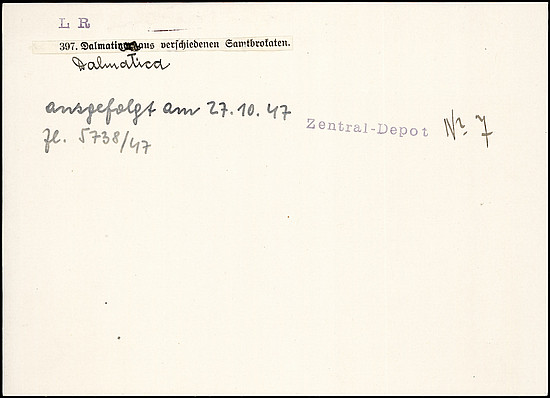 L R
397. Dalmatica aus verschiedenen Samtbrokaten.
Dalmatica
ausgefolgt am 27.10.47
Zl. 5738/47
Zentral-Depot Nr. 7